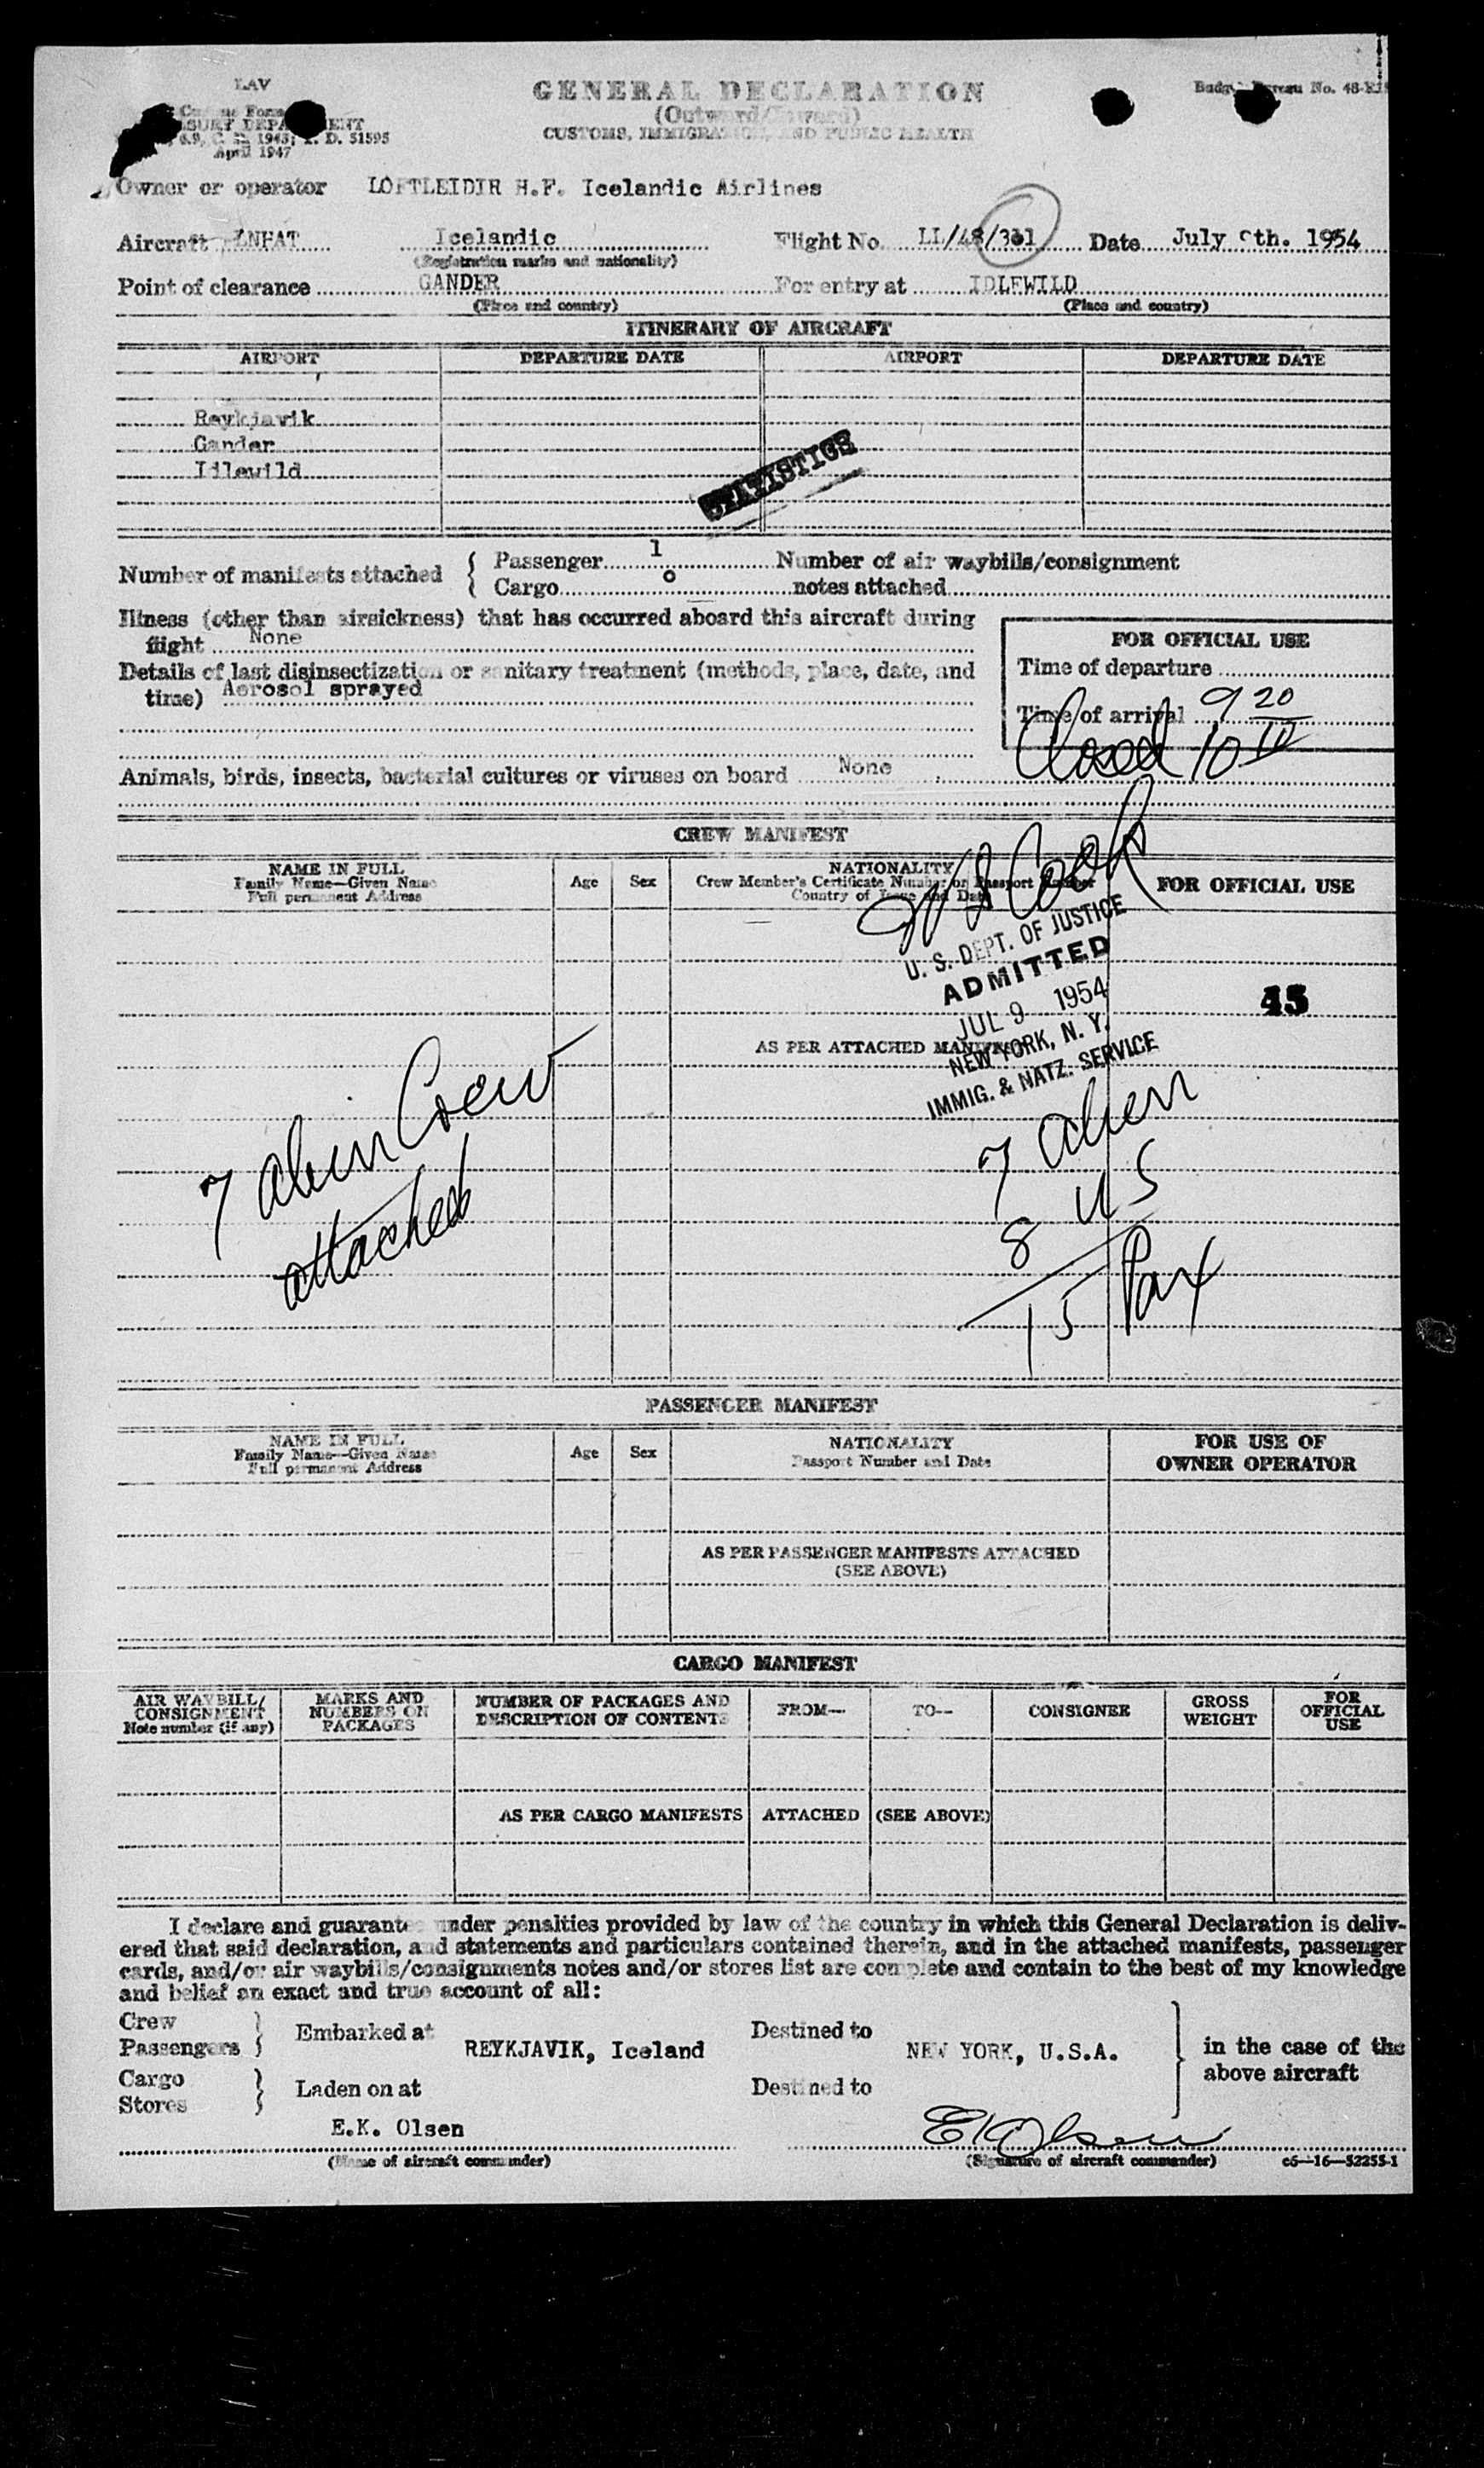 LAV
GENERAL DECLARATION
(Outward/Inward)
CUSTOMS, IMMIGRATION, AND PUBLIC HEALTH
Customs Form
TREASURY DEPARTMENT
6.9, C. R. 1943; T. D. 51595
April 1947
Budget Bureau No.
Owner or operator LOFTLEIDIR H.F. Icelandic Airlines
Aircraft Icelandic Flight No. LL/48/ Date July 1954
(Registration marks and nationality)
Point of clearance GANDER For entry at IDLEWILD
(Place and country) (Place and country)
ITINERARY OF AIRCRAFT
AIRPORT DEPARTURE DATE AIRPORT DEPARTURE DATE
Reykjavik
Gander
Idlewild
STATISTICS
Number of manifests attached { Passenger 1 Number of air waybills/consignment
Cargo 0 notes attached
Illness (other than airsickness) that has occurred aboard this aircraft during
flight None
Details of last disinsectization or sanitary treatment (methods, place, date, and
time) Aerosol sprayed
FOR OFFICIAL USE
Time of departure
Time of arrival 9 20
Closed 10 10
Animals, birds, insects, bacterial cultures or viruses on board None
CREW MANIFEST
NAME IN FULL
Family Name—Given Name
Full permanent Address
Age Sex
NATIONALITY
Crew Member's Certificate Number or Passport Number
Country of Issue and Date
FOR OFFICIAL USE
Cook
U. S. DEPT. OF JUSTICE
ADMITTED
JUL 9 1954
NEW YORK, N. Y.
IMMIG. & NATZ. SERVICE
45
AS PER ATTACHED MANIFEST
7 alien Crew
attached
7 alien
8 US
15 Pax
PASSENGER MANIFEST
NAME IN FULL
Family Name—Given Name
Full permanent Address
Age Sex
NATIONALITY
Passport Number and Date
FOR USE OF
OWNER OPERATOR
AS PER PASSENGER MANIFESTS ATTACHED
(SEE ABOVE)
CARGO MANIFEST
AIR WAYBILL/
CONSIGNMENT
Note number (if any)
MARKS AND
NUMBERS ON
PACKAGES
NUMBER OF PACKAGES AND
DESCRIPTION OF CONTENTS
FROM—
TO—
CONSIGNEE
GROSS
WEIGHT
FOR
OFFICIAL
USE
AS PER CARGO MANIFESTS ATTACHED (SEE ABOVE)
I declare and guarantee under penalties provided by law of the country in which this General Declaration is deliv-
ered that said declaration, and statements and particulars contained therein, and in the attached manifests, passenger
cards, and/or air waybills/consignments notes and/or stores list are complete and contain to the best of my knowledge
and belief an exact and true account of all:
Crew
Passengers } Embarked at REYKJAVIK, Iceland Destined to NEW YORK, U.S.A. } in the case of the
above aircraft
Cargo
Stores } Laden on at Destined to
E.K. Olsen EKOlsen
(Name of aircraft commander) (Signature of aircraft commander) c6—16—52255-1